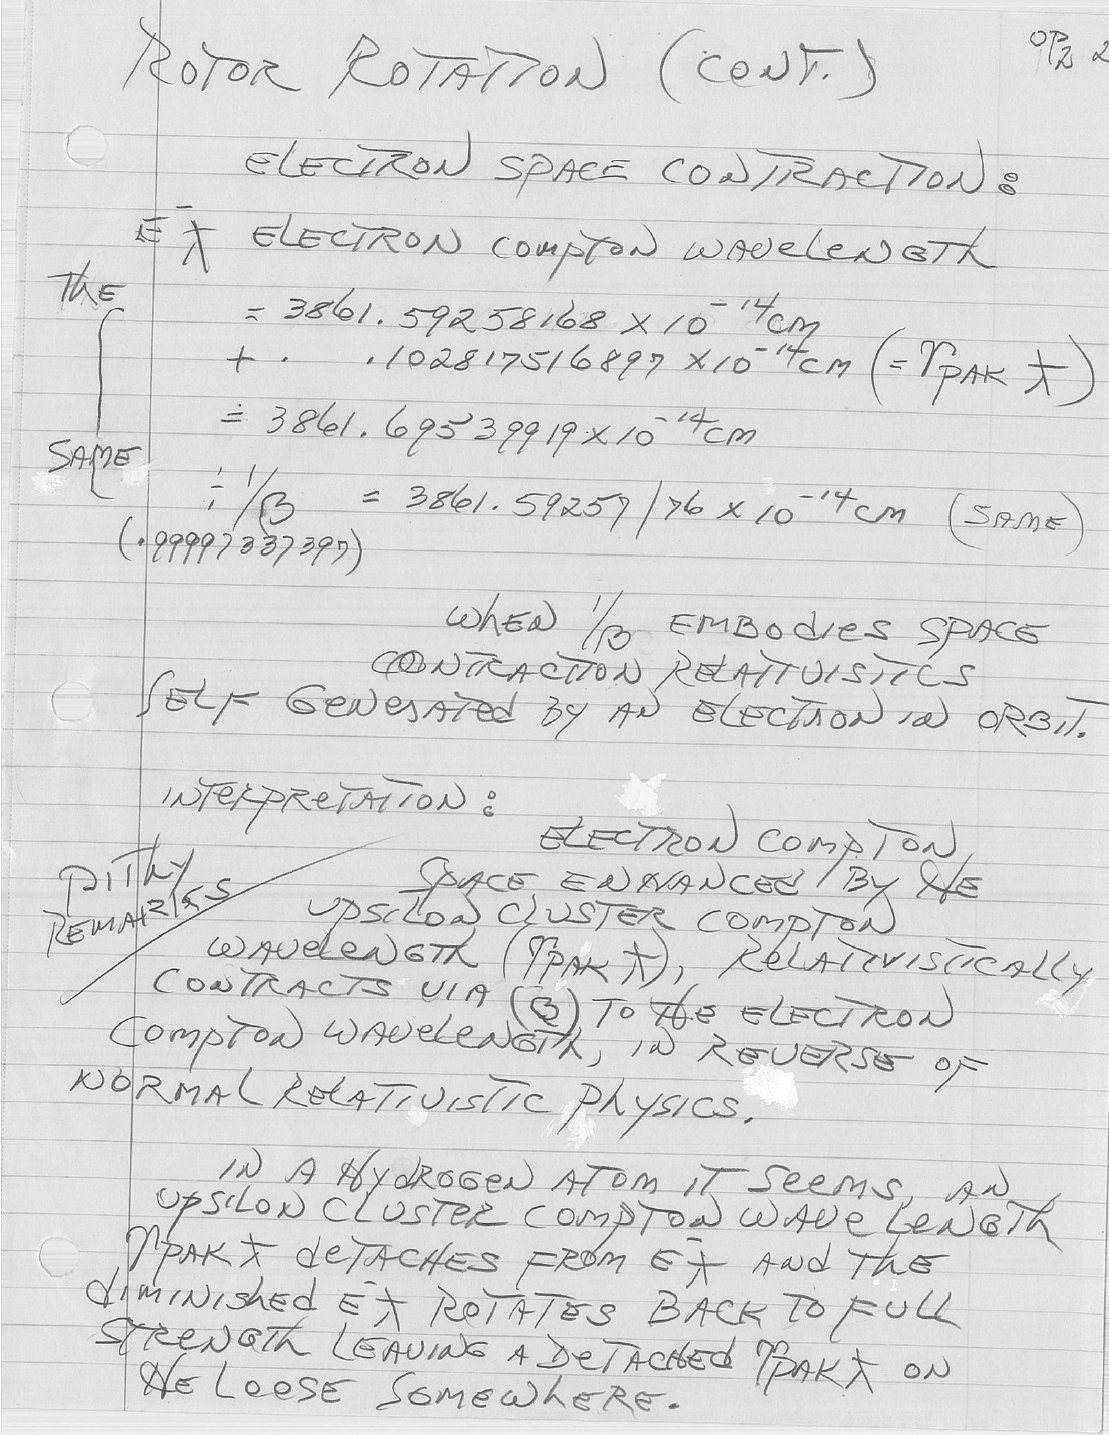 ROTOR ROTATION (CONT.)
ELECTRON SPACE CONTRACTION:
E⁻ƛ ELECTRON COMPTON WAVELENGTH
THE
= 3861.59258168 X 10⁻¹⁴cm
+ . .102817516897 X 10⁻¹⁴cm (= ϒPAK ƛ)
= 3861.69539919 X 10⁻¹⁴cm
SAME
÷ 1/β = 3861.59257176 X 10⁻¹⁴cm (SAME)
(.99997337397)
WHEN 1/β EMBODIES SPACE
CONTRACTION RELATIVISTICS
SELF GENERATED BY AN ELECTRON IN ORBIT.
INTERPRETATION:
ELECTRON COMPTON
PITHY
REMARKS
SPACE ENHANCED BY THE
UPSILON CLUSTER COMPTON
WAVELENGTH (ϒPAK ƛ), RELATIVISTICALLY
CONTRACTS VIA (β) TO THE ELECTRON
COMPTON WAVELENGTH, IN REVERSE OF
NORMAL RELATIVISTIC PHYSICS.
IN A HYDROGEN ATOM IT SEEMS, AN
UPSILON CLUSTER COMPTON WAVELENGTH
ϒPAK ƛ DETACHES FROM E⁻ƛ AND THE
DIMINISHED E⁻ƛ ROTATES BACK TO FULL
STRENGTH LEAVING A DETACHED ϒPAK ƛ ON
THE LOOSE SOMEWHERE.